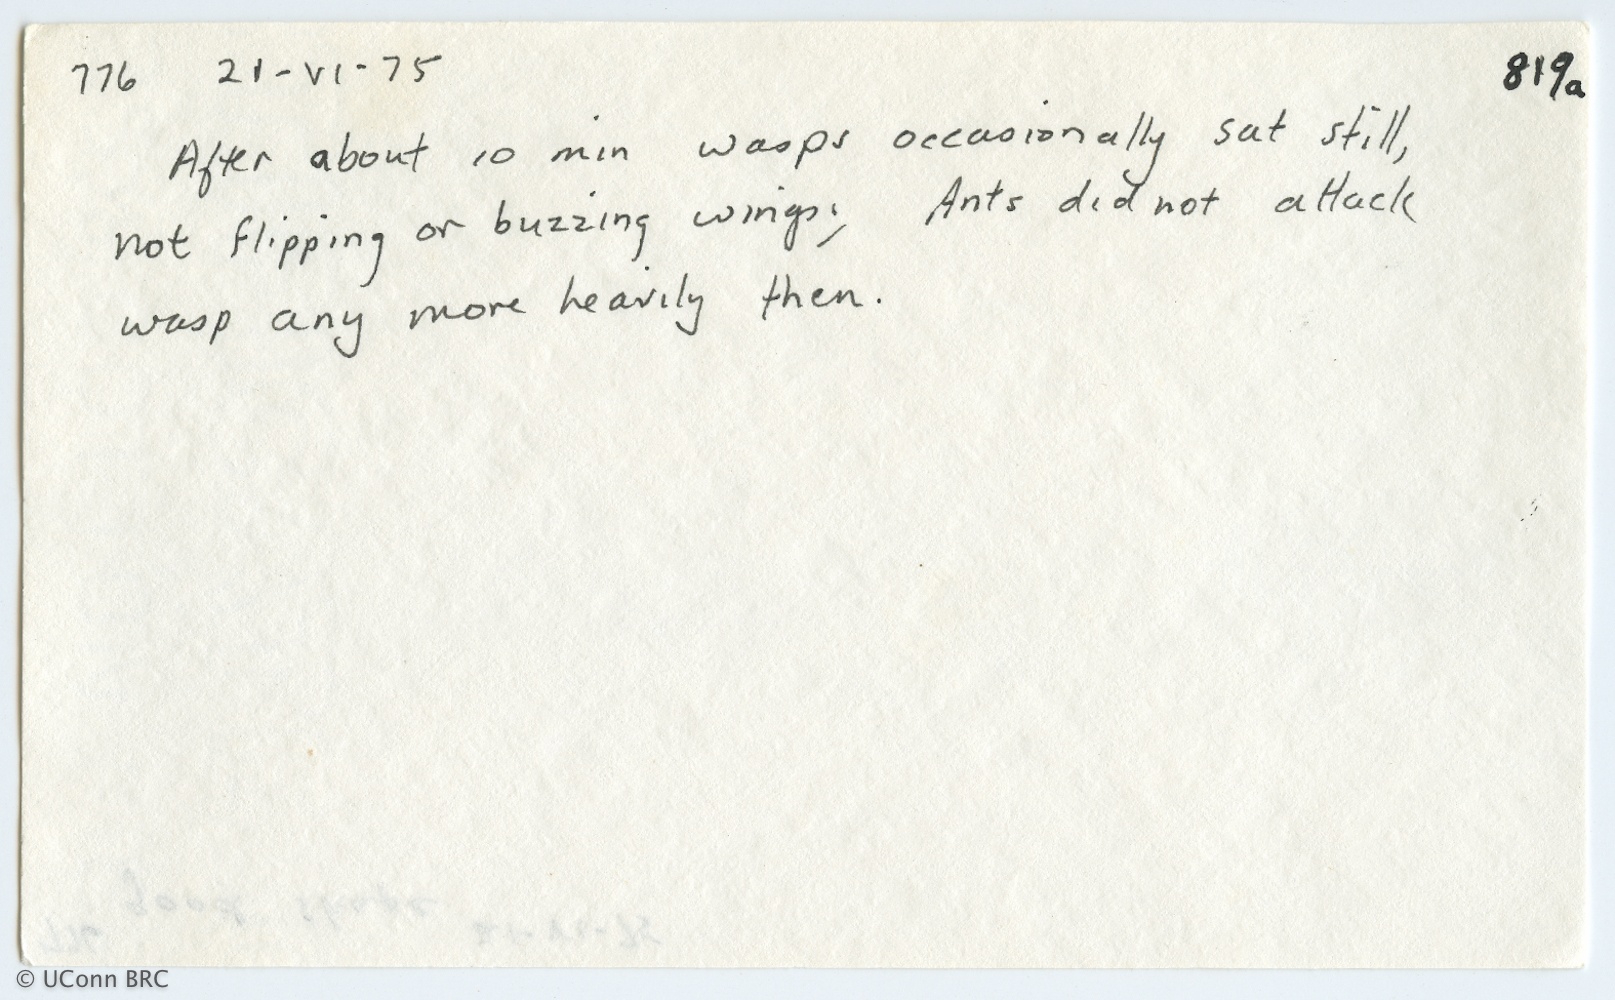 776 21-VI-75 819a
After about 10 min wasps occasionally sat still,
not flipping or buzzing wings; Ants did not attack
wasp any more heavily then.
© UConn BRC